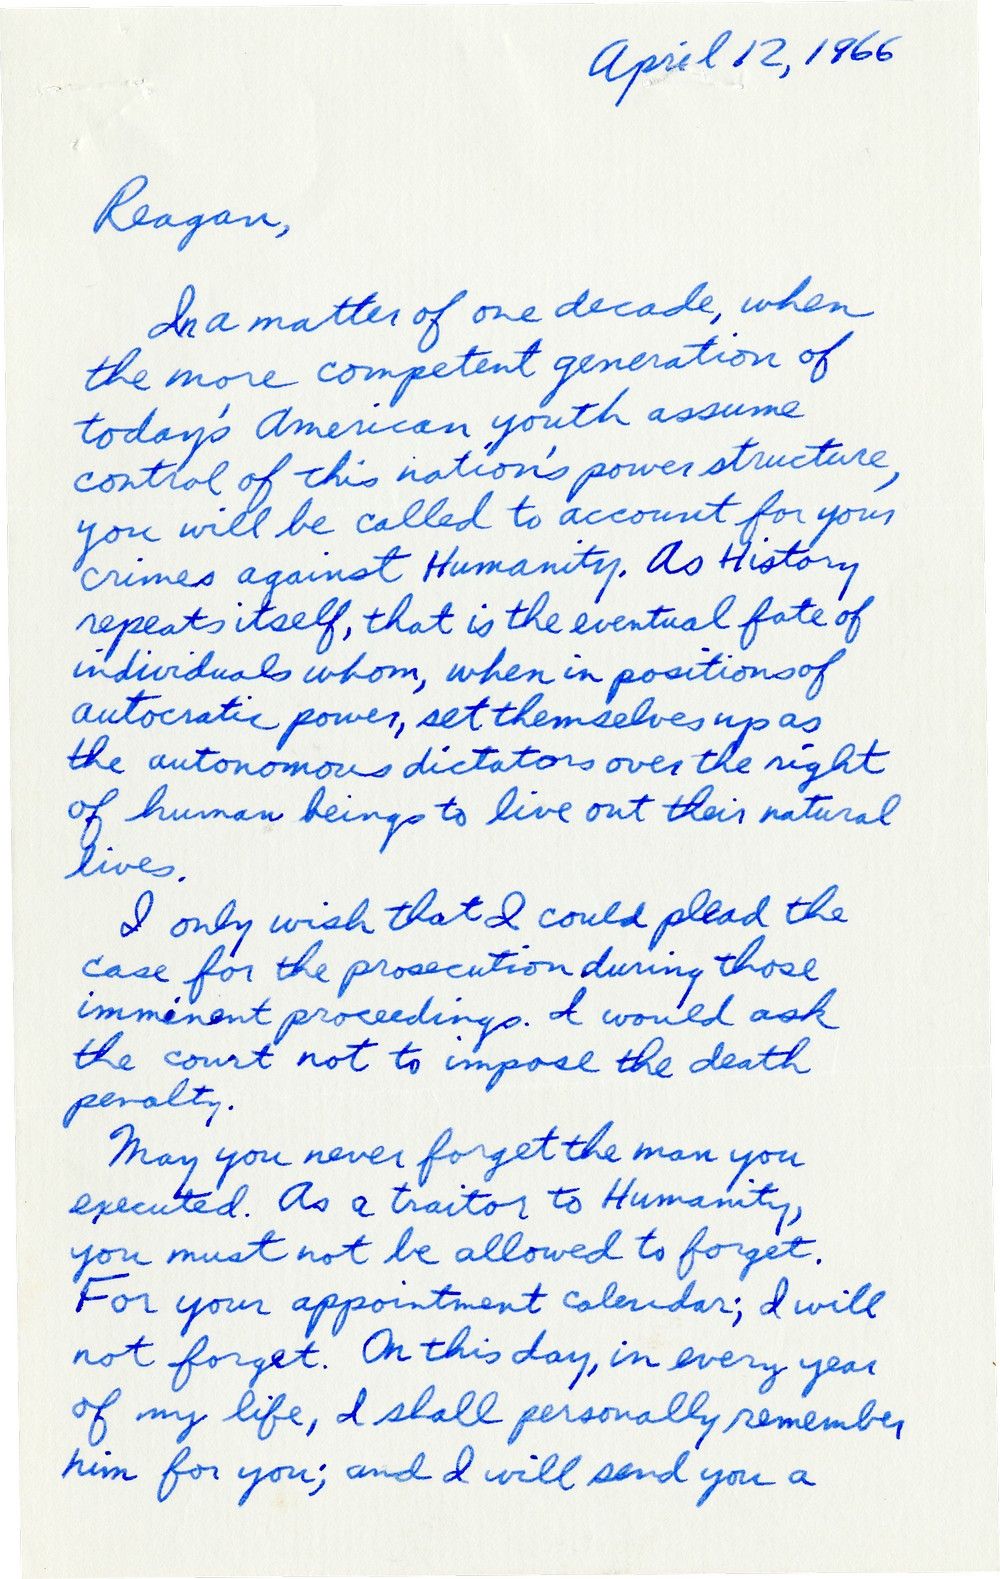 April 12, 1966
Reagan,
In a matter of one decade, when
the more competent generation of
today's American youth assume
control of this nation's power structure,
you will be called to account for your
crimes against Humanity. As History
repeats itself, that is the eventual fate of
individuals whom, when in positions of
autocratic power, set themselves up as
the autonomous dictators over the right
of human beings to live out their natural
lives.
I only wish that I could plead the
case for the prosecution during those
imminent proceedings. I would ask
the court not to impose the death
penalty.
May you never forget the man you
executed. As a traitor to Humanity,
you must not be allowed to forget.
For your appointment calendar; I will
not forget. On this day, in every year
of my life, I shall personally remember
him for you; and I will send you a